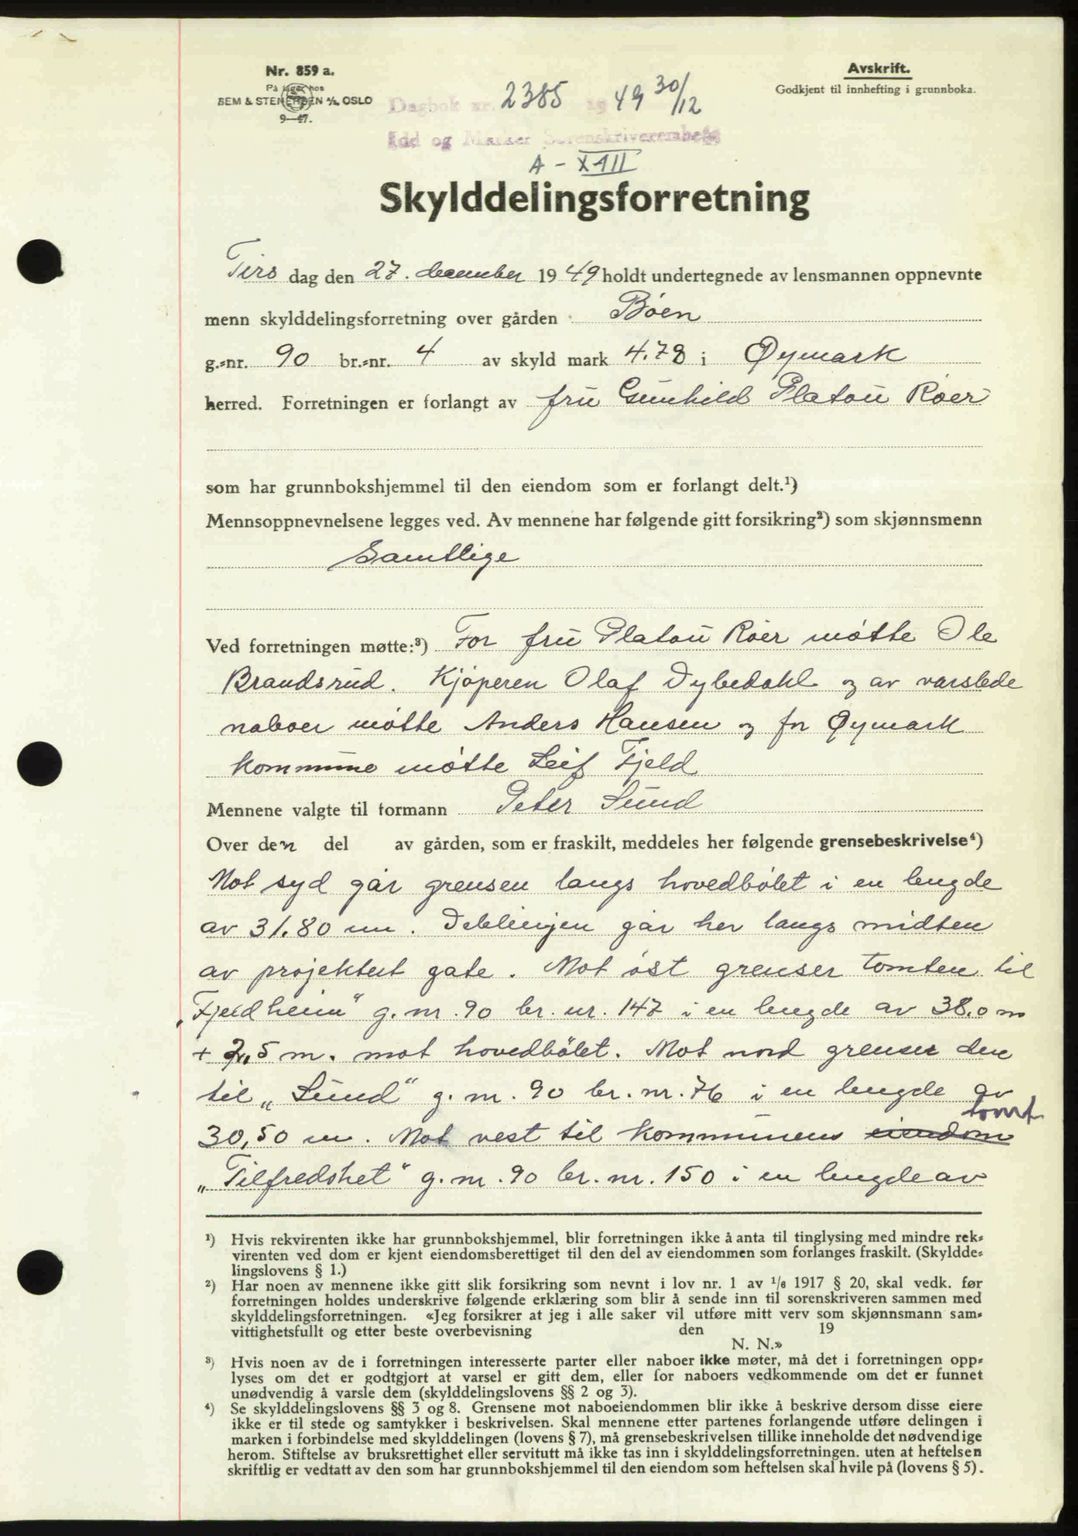 Nr. 859 a.
På lager hos
SEM & STENERSEN A/S, OSLO
9—47.
Avskrift.
Godkjent til innhefting i grunnboka.
Dagbok nr. 2385 1949 30/12
Idd og Marker Sorenskriverembete
A - XVII
Skylddelingsforretning
Tirs dag den 27. december 1949 holdt undertegnede av lensmannen oppnevnte
menn skylddelingsforretning over gården Böen
g.-nr. 90 br.-nr. 4 av skyld mark 4.78 i Øymark
herred. Forretningen er forlangt av fru Gunhild Platou Röer
som har grunnbokshjemmel til den eiendom som er forlangt delt.¹)
Mennsoppnevnelsene legges ved. Av mennene har følgende gitt forsikring²) som skjønnsmenn
Samtlige
Ved forretningen møtte:³) For fru Platou Röer møtte Ole
Brandsrud. Kjöperen Olaf Dybedahl og av varslede
naboer møtte Anders Hansen og for Øymark
kommune møtte Leif Fjeld
Mennene valgte til formann Peter Lund
Over den del av gården, som er fraskilt, meddeles her følgende grensebeskrivelse⁴)
Mot syd går grensen langs hovedbölet i en lengde
av 31.80 m. Delelinjen går her langs midten
av projektert gate. Mot öst grenser tomten til
„Fjeldheim" g. nr. 90 br. nr. 147 i en lengde av 38,0 m
+ 2,5 m. mot hovedbölet. Mot nord grenser den
til „Lund" g. nr. 90 br. nr. 76 i en lengde av
30,50 m. Mot vest til kommunens eiendom tomt
„Tilfredshet" g. nr. 90 br. nr. 150 i en lengde av
¹) Hvis rekvirenten ikke har grunnbokshjemmel, blir forretningen ikke å anta til tinglysing med mindre rek-
virenten ved dom er kjent eiendomsberettiget til den del av eiendommen som forlanges fraskilt. (Skyldde-
lingslovens § 1.)
²) Har noen av mennene ikke gitt slik forsikring som nevnt i lov nr. 1 av ¹/₆ 1917 § 20, skal vedk. før
forretningen holdes underskrive følgende erklæring som blir å sende inn til sorenskriveren sammen med
skylddelingsforretningen. «Jeg forsikrer at jeg i alle saker vil utføre mitt verv som skjønnsmann sam-
vittighetsfullt og etter beste overbevisning den 19
N. N.»
³) Hvis noen av de i forretningen interesserte parter eller naboer ikke møter, må det i forretningen opp-
lyses om det er godtgjort at varsel er gitt dem, eller for naboers vedkommende om det er funnet
unødvendig å varsle dem (skylddelingslovens §§ 2 og 3).
⁴) Se skylddelingslovens §§ 3 og 8. Grensene mot naboeiendommen blir ikke å beskrive dersom disse eiere
ikke er til stede og samtykker i beskrivelsen. Skal mennene etter partenes forlangende utføre delingen i
marken i forbindelse med skylddelingen (lovens § 7), må grensebeskrivelsen tillike inneholde det nødvendige
herom. Stiftelse av bruksrettighet eller servitutt må ikke tas inn i skylddelingsforretningen. uten at heftelsen
skriftlig er vedtatt av den som har grunnbokshjemmel til den eiendom som heftelsen skal hvile på (lovens § 5).